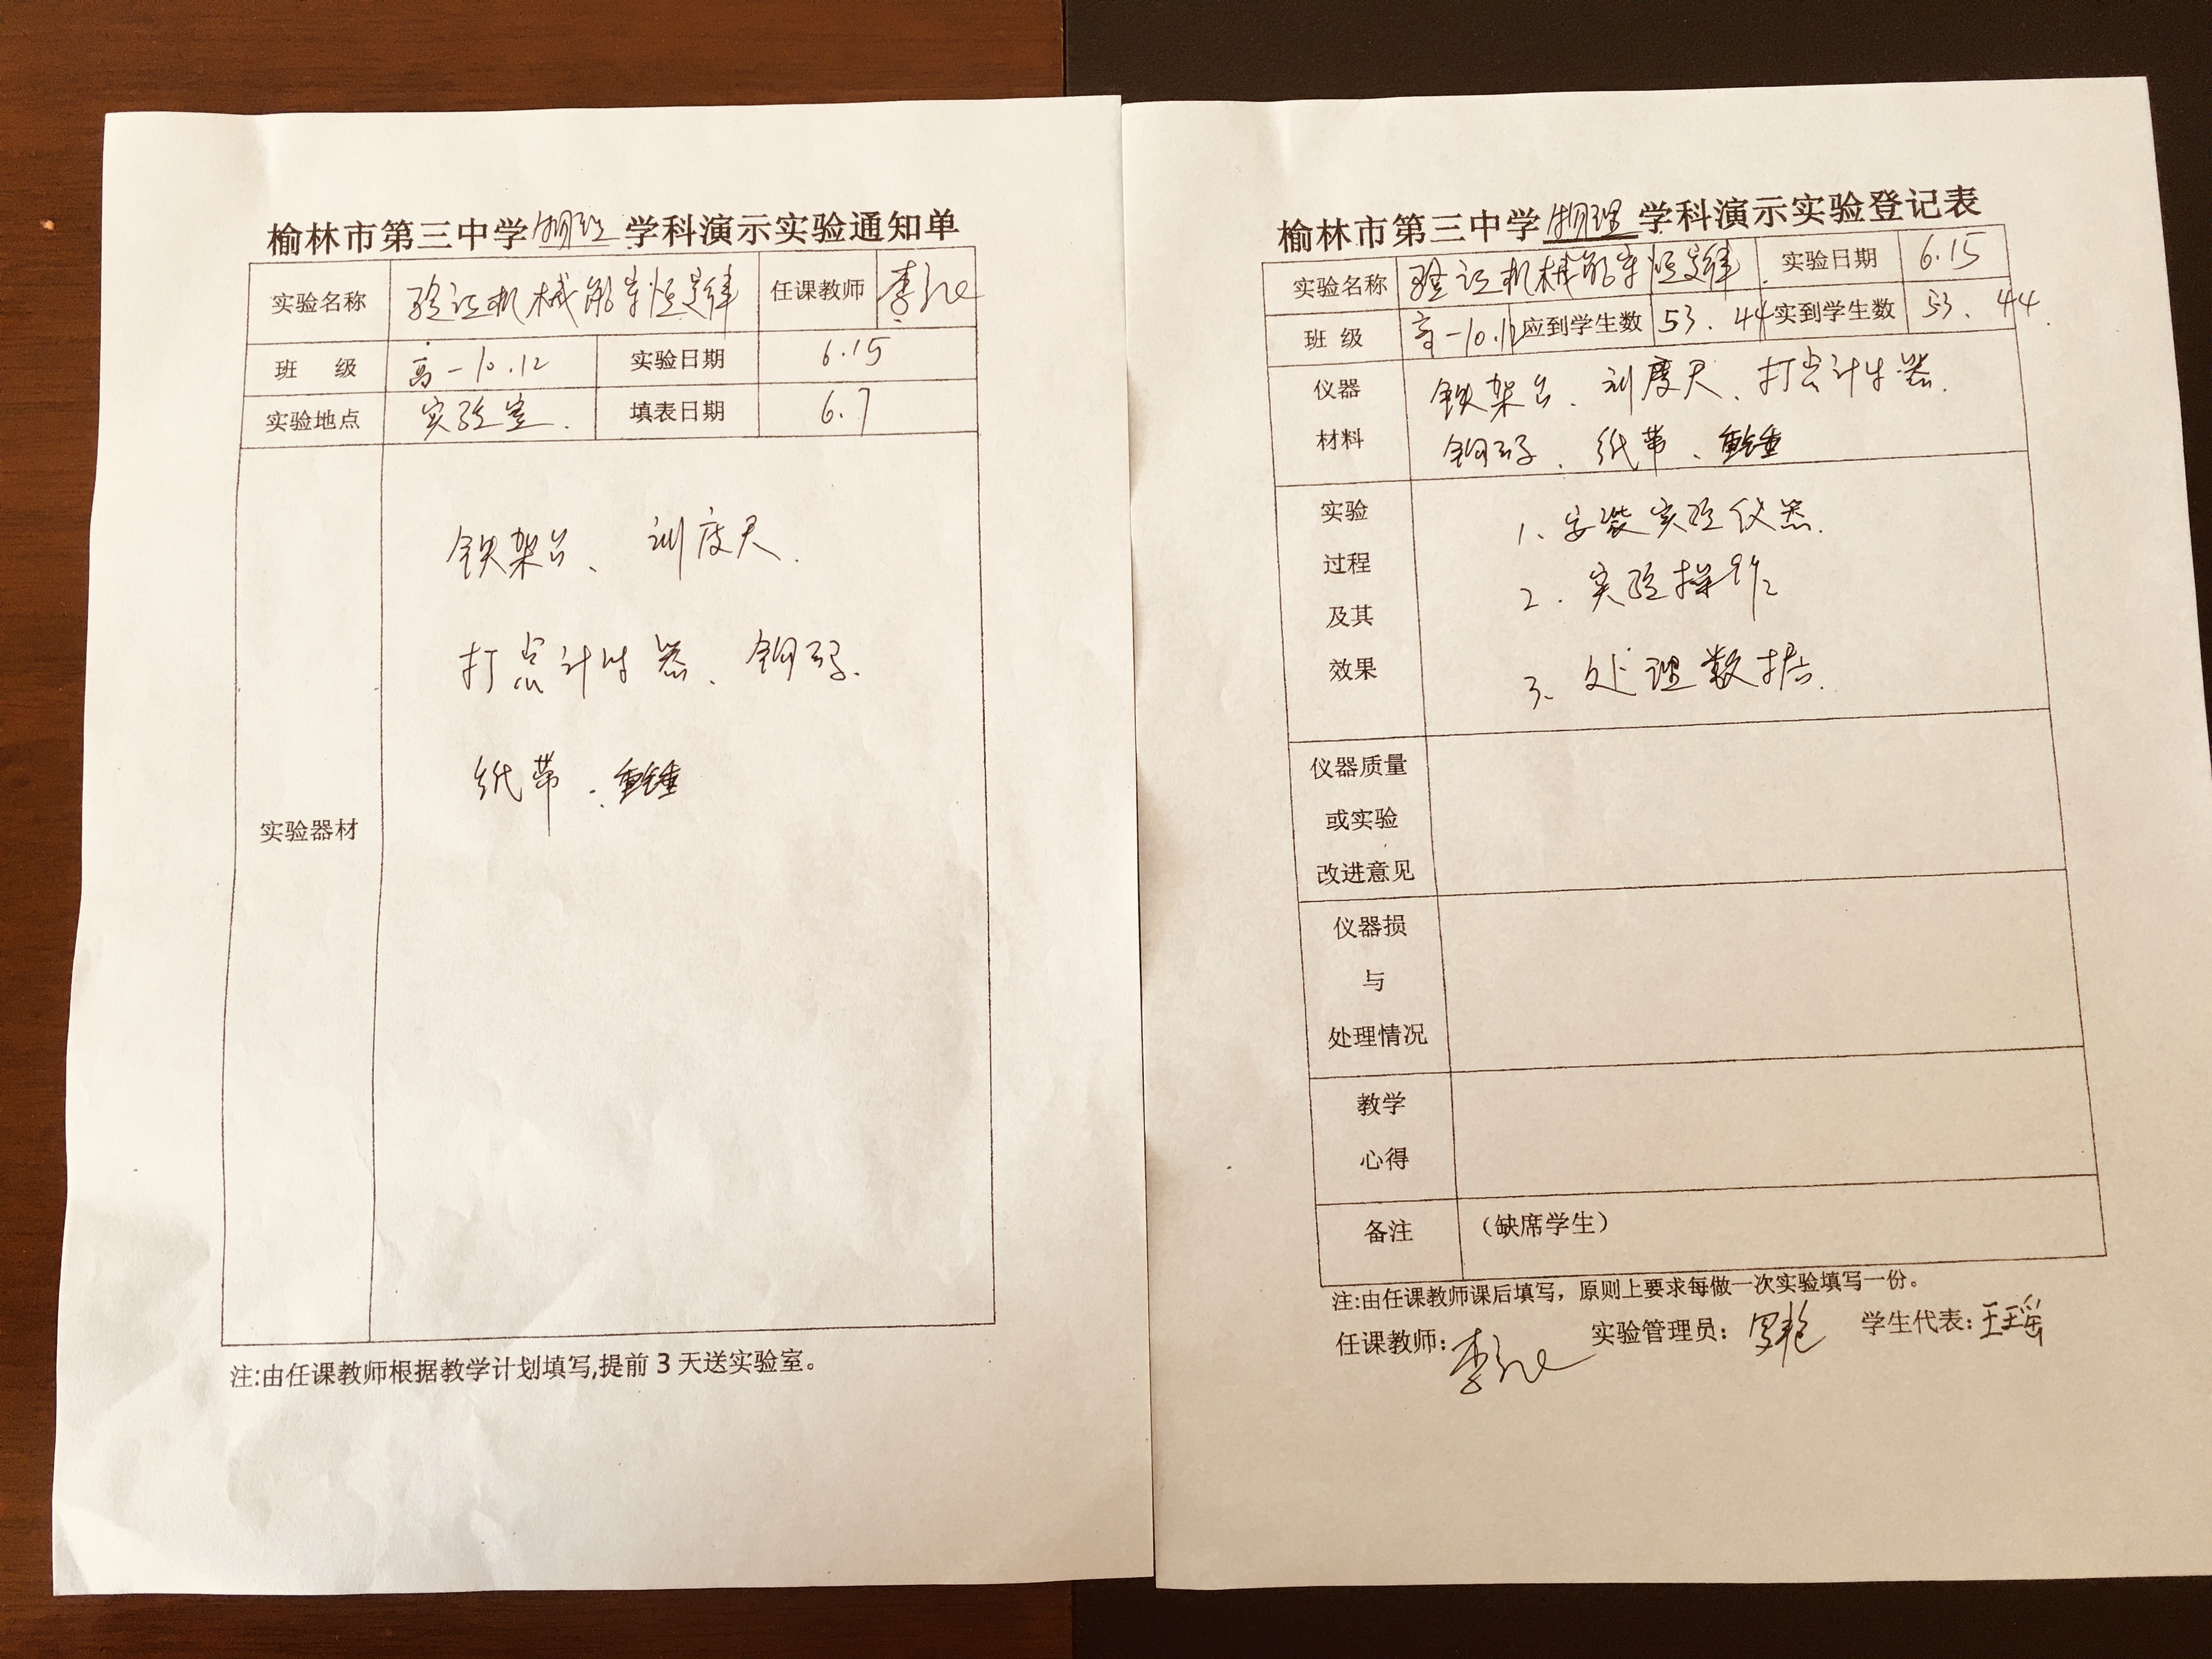 榆林市第三中学物理学科演示实验通知单
实验名称 验证机械能守恒定律 任课教师 李
班 级 高一10.12 实验日期 6.15
实验地点 实验室. 填表日期 6.7
实验器材
铁架台、刻度尺.
打点计时器、钩码.
纸带、重锤
注:由任课教师根据教学计划填写,提前3天送实验室。
榆林市第三中学物理学科演示实验登记表
实验名称 验证机械能守恒定律. 实验日期 6.15
班 级 高一10.12 应到学生数 53.44 实到学生数 53.44.
仪器
材料
铁架台、刻度尺、打点计时器.
钩码、纸带、重锤
实验
过程
及其
效果
1、安装实验仪器.
2.实验操作
3、处理数据.
仪器质量
或实验
改进意见
仪器损
与
处理情况
教学
心得
备注 （缺席学生）
注:由任课教师课后填写，原则上要求每做一次实验填写一份。
任课教师: 李 实验管理员: 罗艳 学生代表: 王瑶